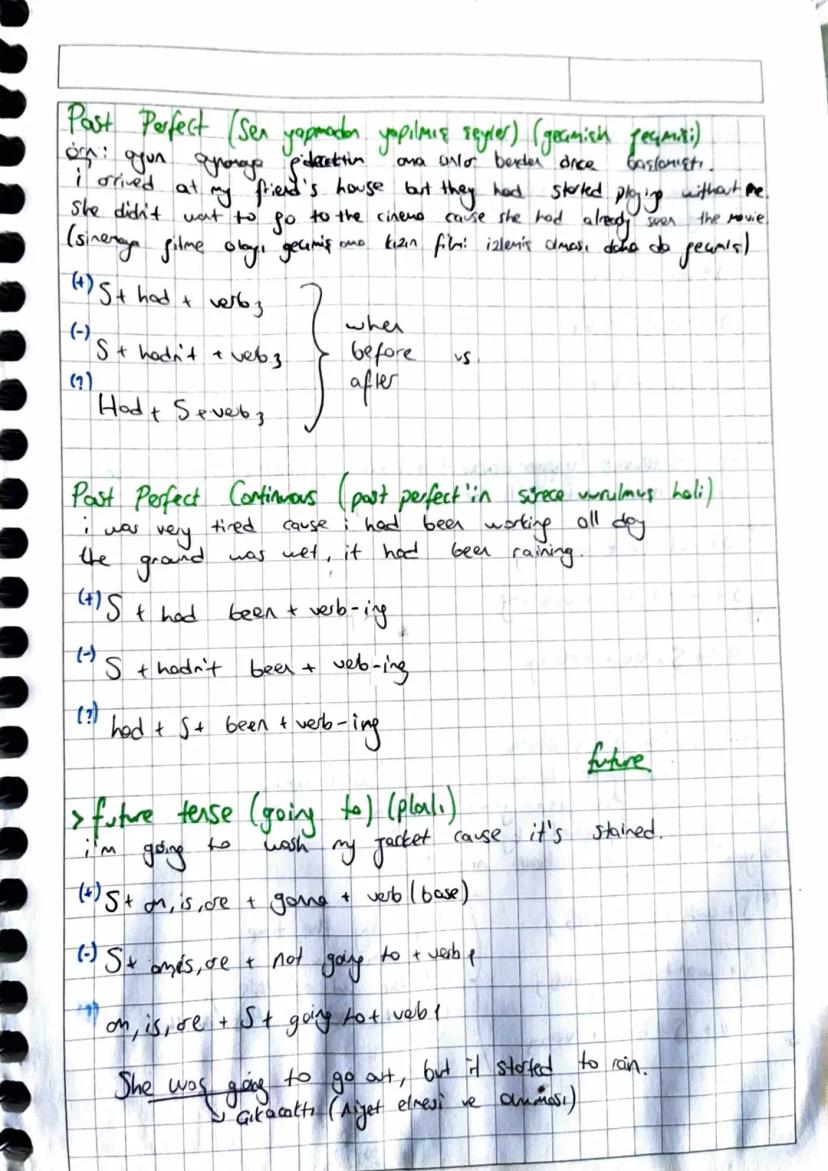 Past Perfect (Sen yapmadan yapılmış şeyler) (geçmişin geçmişi)
örn: oyun oynamaya gidecektim ama onlar benden önce başlamıştı.
i arrived at my friend's house but they had started playing without me.
She didn't want to go to the cinema cause she had already seen the movie
(sinemaya gitme olayı geçmiş ama kızın filmi izlemiş olması daha da geçmiş)
(+) S + had + verb3
(-) S + hadn't + verb3
(?) Had + S + verb3
when
before vs.
after
Past Perfect Continuous (past perfect'in sürece vurulmuş hali)
i was very tired cause i had been working all day
the ground was wet, it had been raining.
(+) S + had been + verb-ing
(-) S + hadn't been + verb-ing
(?) had + S + been + verb-ing
future
> future tense (going to) (planlı)
i'm going to wash my jacket cause it's stained.
(+) S + am, is, are + gonna + verb (base)
(-) S + am, is, are + not going to + verb1
(?) am, is, are + S + going to + verb1
She was going to go out, but it started to rain.
↳ Çıkacaktı (niyet etmesi ve olmaması)